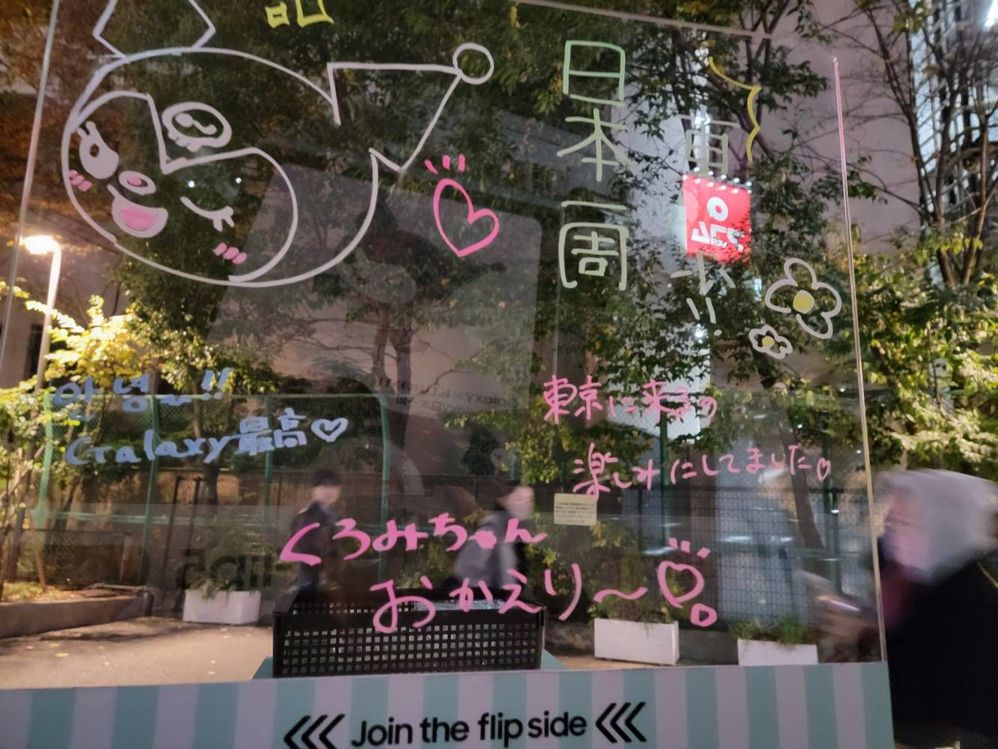 日本一周
안녕~!!
Galaxy最高♡
東京に来るの
楽しみにしてました♡
くろみちゃん
おかえり〜♡
Join the flip side